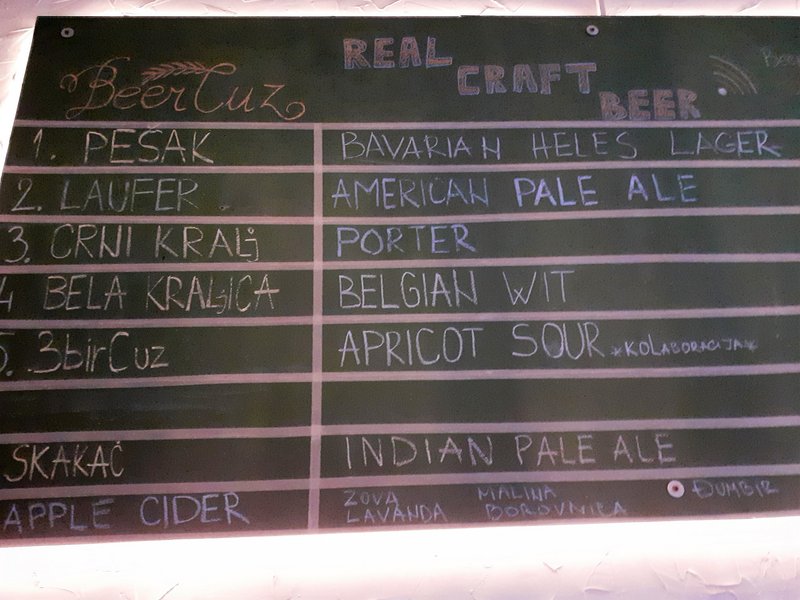 BeerCuz
REAL
CRAFT
BEER
1. PEŠAK BAVARIAN HELES LAGER
2. LAUFER AMERICAN PALE ALE
3. CRNI KRALj PORTER
4 BELA KRALjICA BELGIAN WIT
5. 3birCuz APRICOT SOUR *KOLABORACIJA*
SKAKAČ INDIAN PALE ALE
APPLE CIDER ZOVA MALINA ĐUMBIR
LAVANDA BOROVNICA